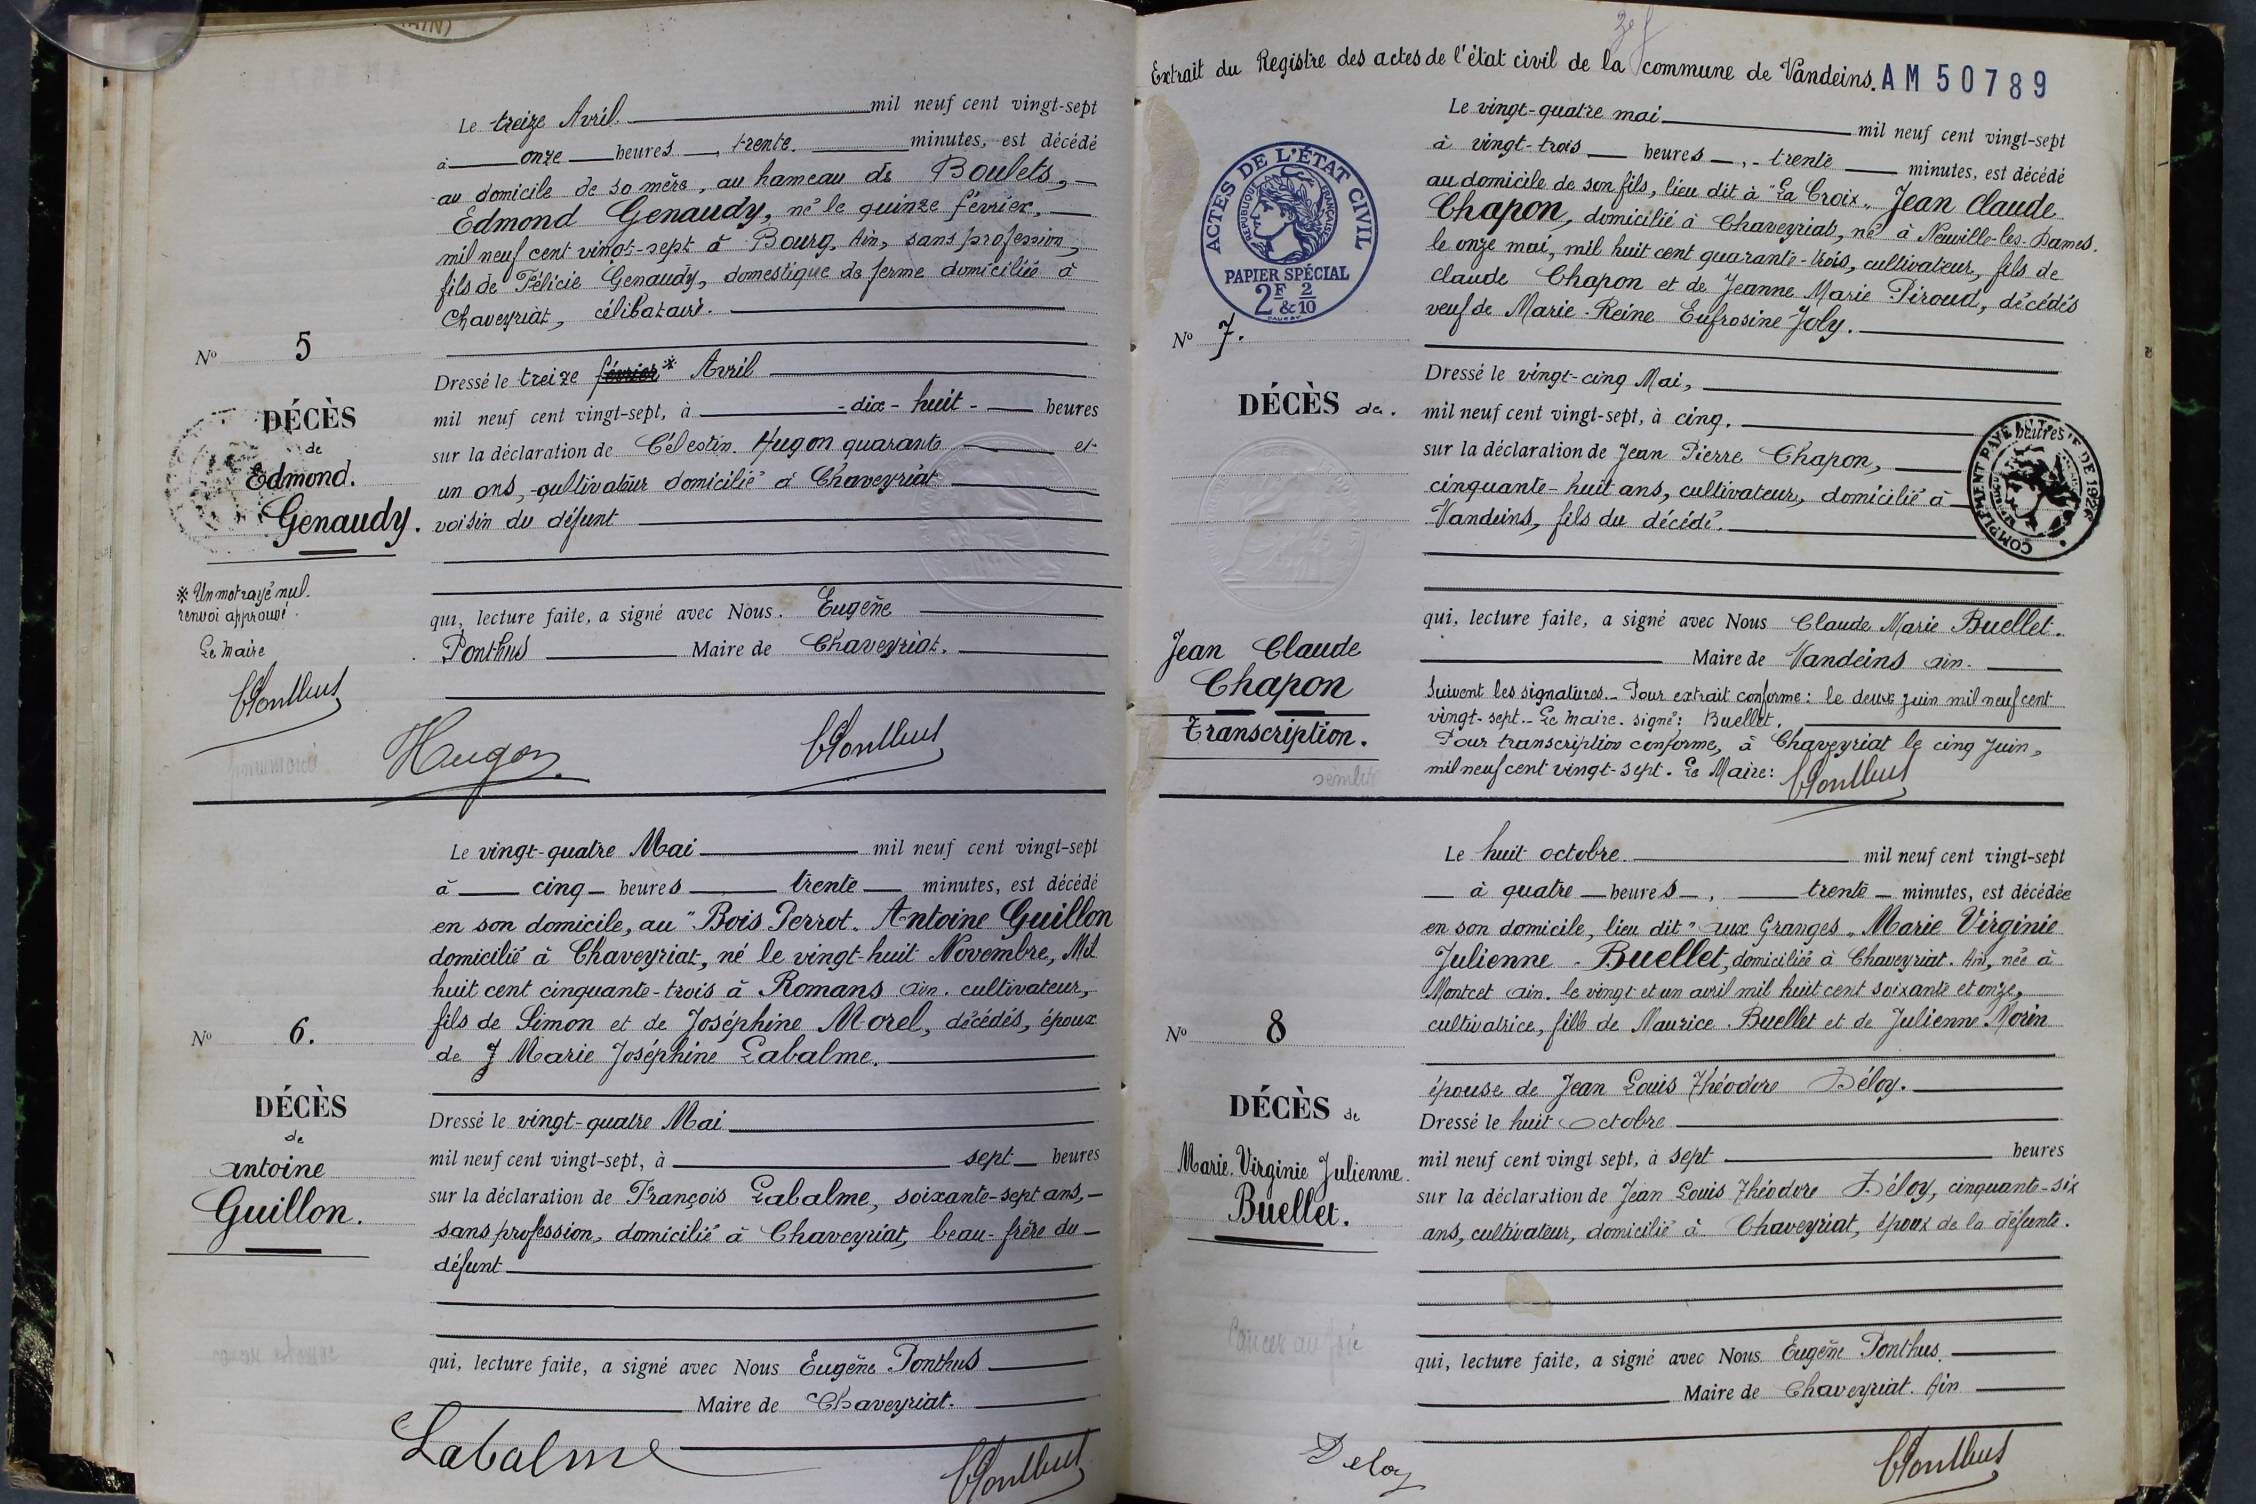 Le treize Avril. mil neuf cent vingt-sept
à onze heures, trente. minutes, est décédé
au domicile de sa mère, au hameau de Boulets,
Edmond Genaudy, né le quinze février,
mil neuf cent vingt-sept à Bourg, Ain, sans profession,
fils de Félicie Genaudy, domestique de ferme domiciliée à
Chaveyriat, célibataire.
Nº 5
DÉCÈS
de
Edmond.
Genaudy.
※ Un mot rayé nul.
renvoi approuvé.
Le Maire
EPonthus
Dressé le treize février※ Avril
mil neuf cent vingt-sept, à - dix - huit - heures
sur la déclaration de Célestin Hugon quarante et
un ans, cultivateur domicilié à Chaveyriat
voisin du défunt
qui, lecture faite, a signé avec Nous. Eugène
Ponthus Maire de Chaveyriat.
Hugon. EPonthus
Le vingt-quatre Mai mil neuf cent vingt-sept
à cinq heures trente minutes, est décédé
en son domicile, au "Bois Perrot" Antoine Guillon
domicilié à Chaveyriat, né le vingt-huit Novembre, Mil
huit cent cinquante-trois à Romans Ain. cultivateur,
fils de Simon et de Joséphine Morel, décédés, époux
de J Marie Joséphine Labalme.
Nº 6.
DÉCÈS
de
Antoine
Guillon.
Dressé le vingt-quatre Mai
mil neuf cent vingt-sept, à sept heures
sur la déclaration de François Labalme, soixante-sept ans,
sans profession, domicilié à Chaveyriat, beau-frère du
défunt
qui, lecture faite, a signé avec Nous Eugène Ponthus
Maire de Chaveyriat.
Labalme EPonthus
Extrait du Registre des actes de l'état civil de la commune de Vandeins. AM 50789
ACTES DE L'ÉTAT CIVIL
RÉPUBLIQUE FRANÇAISE
PAPIER SPÉCIAL
2F & 2/10
Le vingt-quatre mai mil neuf cent vingt-sept
à vingt-trois heures, trente minutes, est décédé
au domicile de son fils, lieu dit à "La Croix" Jean Claude
Chapon, domicilié à Chaveyriat, né à Neuville-les-Dames.
le onze mai, mil huit cent quarante-trois, cultivateur, fils de
Claude Chapon et de Jeanne Marie Piroud, décédés
veuf de Marie-Reine Eufrosine Joly.
Nº 7.
DÉCÈS de.
Jean Claude
Chapon
Transcription.
Dressé le vingt-cinq Mai,
mil neuf cent vingt-sept, à cinq. heures
sur la déclaration de Jean Pierre Chapon,
cinquante-huit ans, cultivateur, domicilié à
Vandeins, fils du décédé.
COMPLÉMENT PAYÉ AU TITRE DE 1926
qui, lecture faite, a signé avec Nous Claude Marie Buellet.
Maire de Vandeins Ain.
Suivent les signatures. - Pour extrait conforme: le deux juin mil neuf cent
vingt-sept. - Le Maire. signé: Buellet.
Pour transcription conforme, à Chaveyriat le cinq Juin,
mil neuf cent vingt-sept. Le Maire: EPonthus
Le huit octobre. mil neuf cent vingt-sept
à quatre heures, trente minutes, est décédée
en son domicile, lieu dit "aux Granges" Marie Virginie
Julienne Buellet, domiciliée à Chaveyriat. Ain, née à
Montcet Ain. le vingt et un avril mil huit cent soixante et onze,
cultivatrice, fille de Maurice Buellet et de Julienne Morin
épouse de Jean Louis Théodore Déloy.
Nº 8
DÉCÈS de
Marie Virginie Julienne
Buellet.
Cancer au foie
Dressé le huit Octobre
mil neuf cent vingt sept, à sept heures
sur la déclaration de Jean Louis Théodore Déloy, cinquante-six
ans, cultivateur, domicilié à Chaveyriat, époux de la défunte.
qui, lecture faite, a signé avec Nous Eugène Ponthus.
Maire de Chaveyriat. Ain
Deloy EPonthus